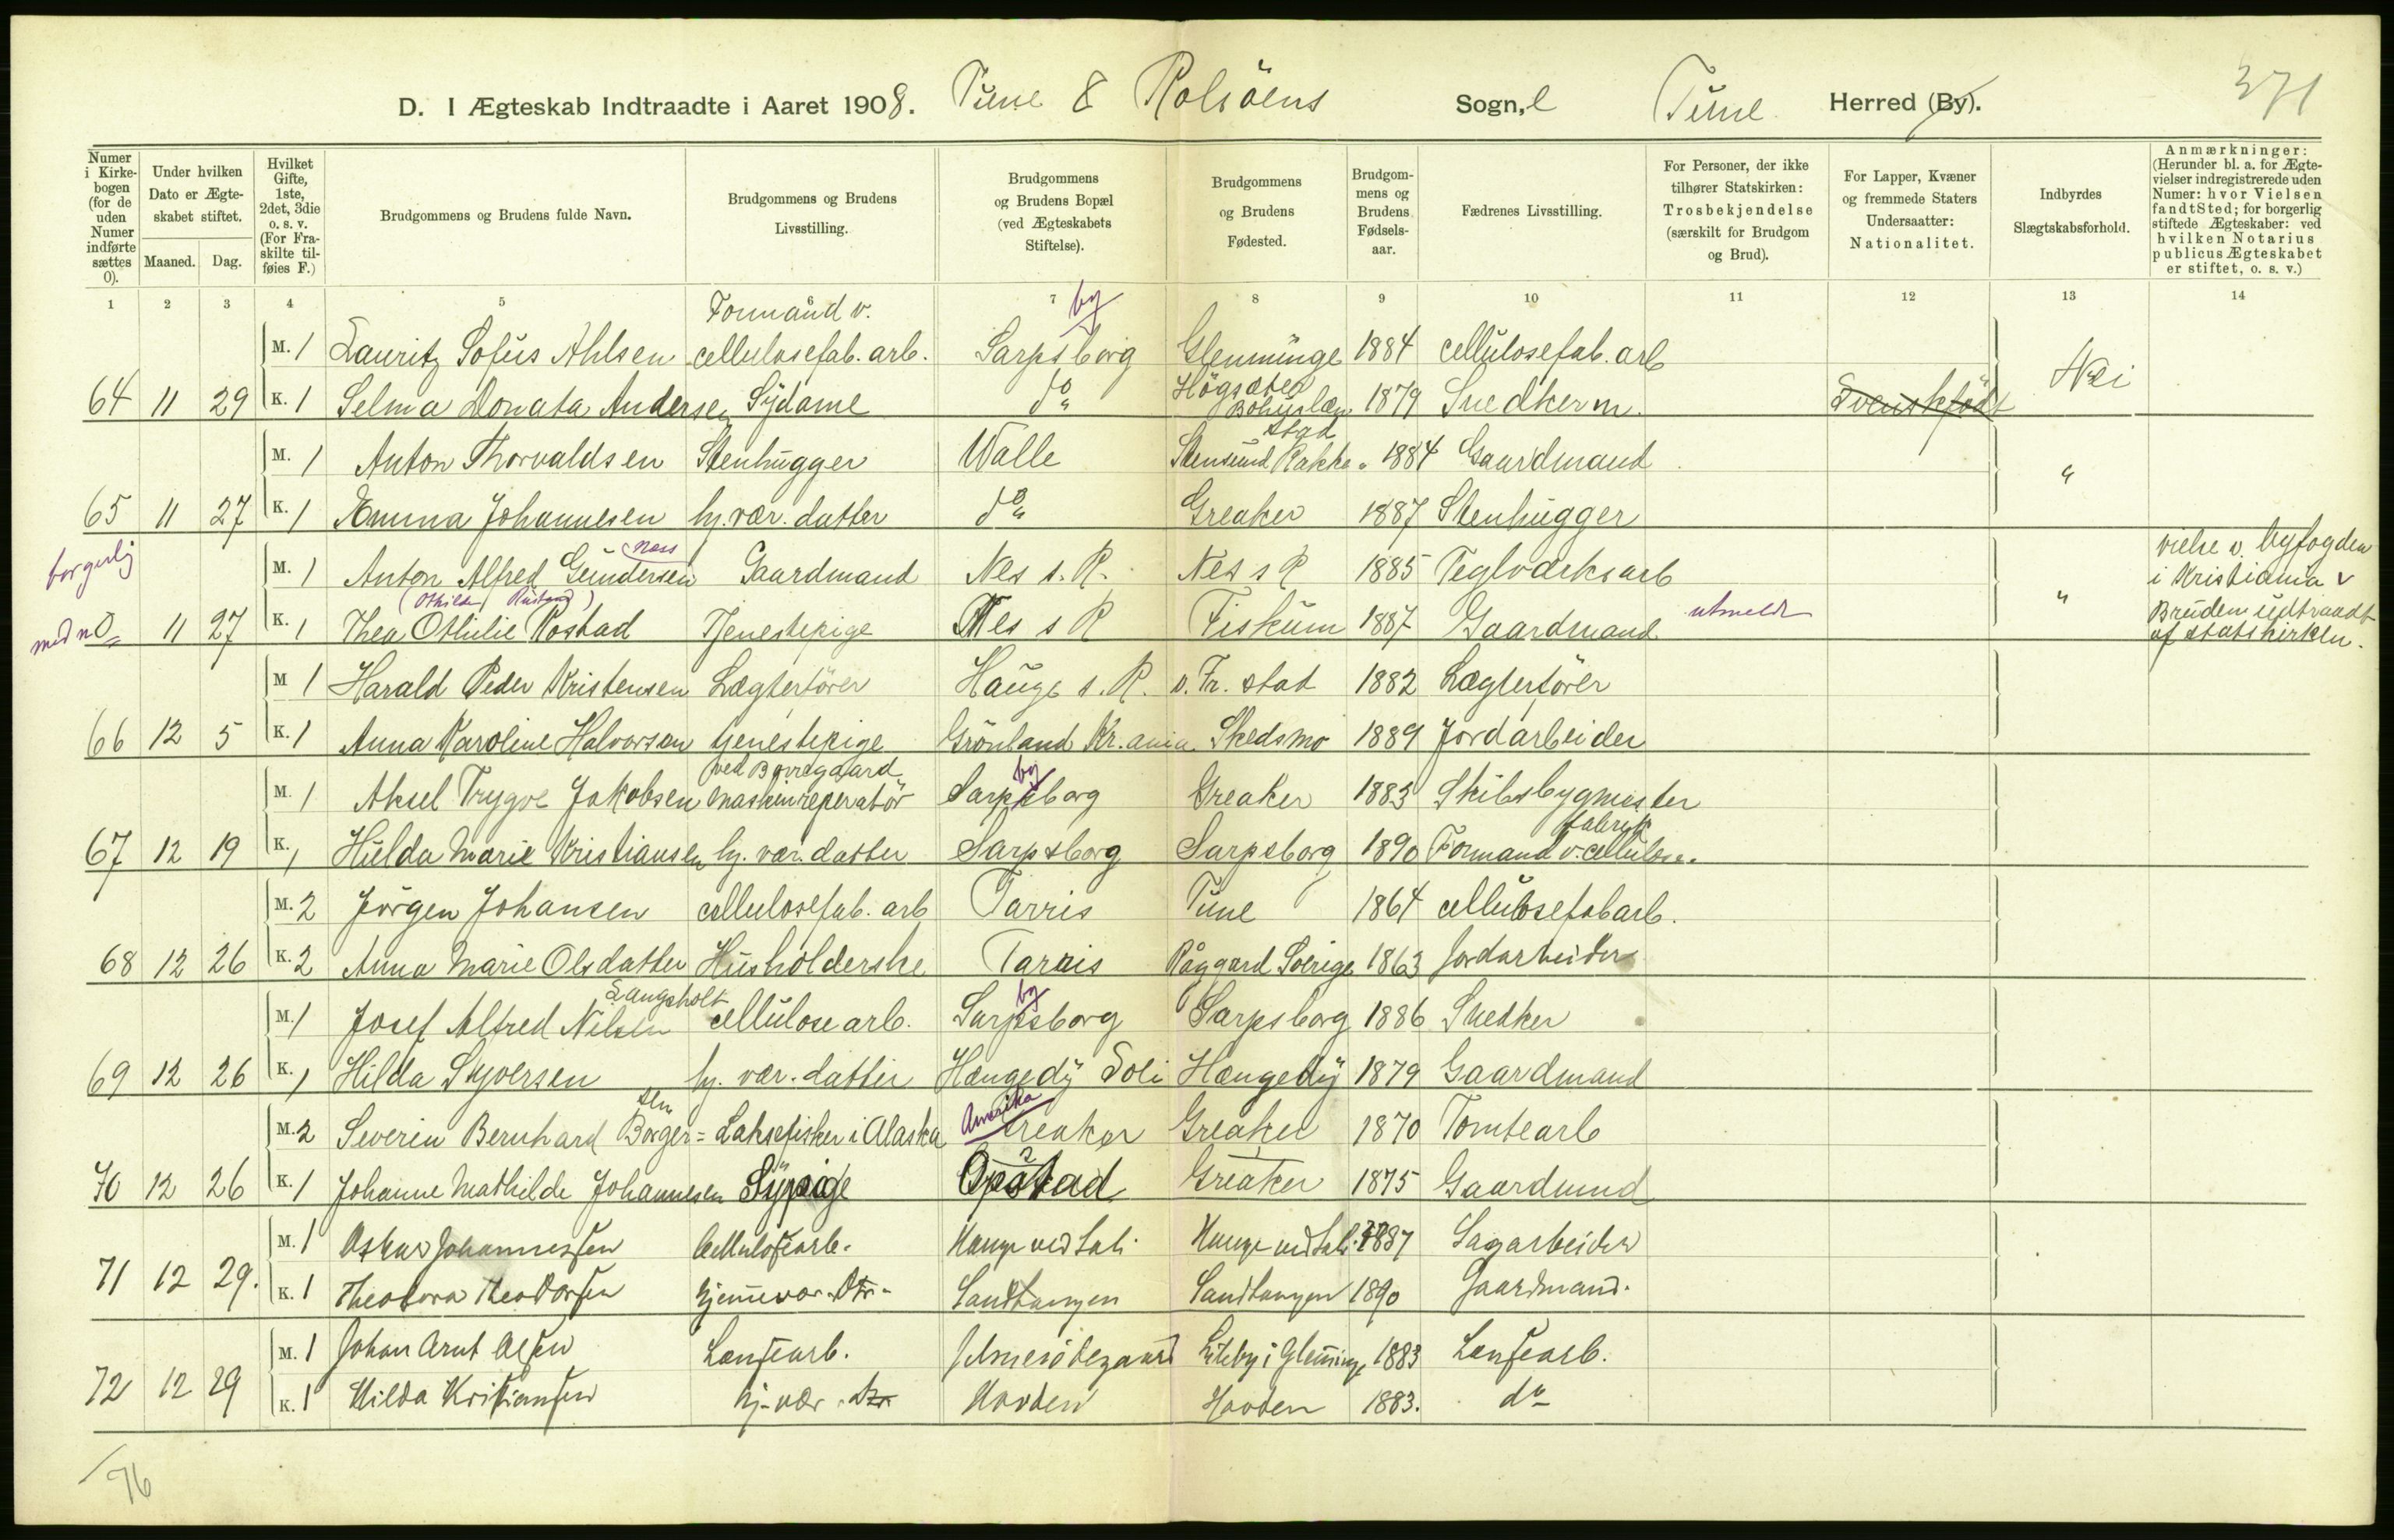 371
D. I Ægteskab Indtraadte i Aaret 1908. Tune & Rolsöens Sogn, Tune Herred (By).
Numer i Kirkebogen (for de uden Numer indførte sættes 0).
Under hvilken Dato er Ægteskabet stiftet.
Maaned. Dag.
Hvilket Gifte, 1ste, 2det, 3die o. s. v. (For Fraskilte tilføies F.)
Brudgommens og Brudens fulde Navn.
Brudgommens og Brudens Livsstilling.
Brudgommens og Brudens Bopæl (ved Ægteskabets Stiftelse).
Brudgommens og Brudens Fødested.
Brudgommens og Brudens Fødselsaar.
Fædrenes Livsstilling.
For Personer, der ikke tilhører Statskirken: Trosbekjendelse (særskilt for Brudgom og Brud).
For Lapper, Kvæner og fremmede Staters Undersaatter: Nationalitet.
Indbyrdes Slægtskabsforhold.
Anmærkninger: (Herunder bl. a. for Ægtevielser indregistrerede uden Numer: hvor Vielsen fandt Sted; for borgerlig stiftede Ægteskaber: ved hvilken Notarius publicus Ægteskabet er stiftet, o. s. v.)
1 2 3 4 5 6 7 8 9 10 11 12 13 14
Formand v. by
M. 1 Lauritz Sofus Ahlsen cellulosefab. arb. Sarpsborg Glemminge 1884 cellulosefab. arb
64 11 29 K. 1 Selma Donata Andersen Sydame do Högsäter Bohuslæn 1879 Snedkerm. Svenskfödt Nei
M. 1 Anton Thorvaldsen Stenhugger Walle Stensund Rakkestad 1884 Gaardmand "
65 11 27 K. 1 Emma Johannesen hj. vær. datter do Greaker 1887 Stenhugger
borgerlig M. 1 Anton Alfred Gundersen (Næss Gaardmand Nes s. R. Nes s R 1885 Teglværksarb vielse v. byfogden i Kristiania v
med n 0 11 27 K. 1 Thea Othilie Rostad (Othilde Rustand) Tjenestepige Nes s R Fiskum 1887 Gaardmand utmeldt " Bruden udtraadt af statskirken.
M 1 Harald Peder Kristensen Lægterförer Hauge s. R. v. Fr. stad 1882 Lægterförer
66 12 5 K. 1 Anna Karoline Halvorsen tjenestepige Grönland Kr.ania Skedsmo 1889 Jordarbeider
ved Borregaard by
M. 1 Aksel Trygve Jakobsen maskinreperatör Sarpsborg Greaker 1883 Skibsbygmester
67 12 19 K. 1 Hulda Marie Kristiansen hj. vær. datter Sarpsborg Sarpsborg 1890 Formand v. cellulose. fabrik
M. 2 Jörgen Johansen cellulosefab. arb Tarris Tune 1864 cellulosefabarb.
68 12 26 K. 2 Anna Marie Olsdatter Husholderske Tarris Råggard Sverige 1863 Jordarbeider
Langsholt by
M. 1 Josef Alfred Nilsen cellulosearb. Sarpsborg Sarpsborg 1886 Snedker
69 12 26 K. 1 Hilda Syversen hj. vær. datter Hængedy Soli Hængedy 1879 Gaardmand
M. 2 Severin Bernhard Borger=sen Laksefisker i Alaska Amerika Greaker Greaker 1870 Tomtearb
70 12 26 K. 1 Johanne Mathilde Johannesen Sypige Opstad Greaker 1875 Gaardmand
M. 1 Oskar Johannessen Cellulosearb. Hauge ved Soli Hauge ved Soli 1887 Sagarbeider
71 12 29. K. 1 Theodora Theodorsen hjemmevær. Dtr. Sandtangen Sandtangen 1890 Gaardmand.
M. 1 Johan Arnt Olsen Lensearb. Lisleby i Glemminge 1883 Lensearb.
72 12 29 K. 1 Hilda Kristiansen hj. vær. Dtr. Hovden Hovden 1883. do
/76